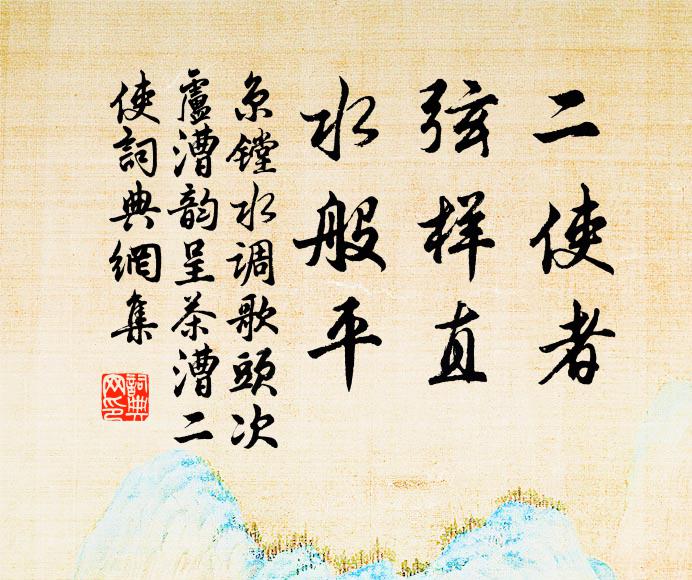 二使者
弦样直
水般平
京镗水调歌頭次
盧漕韵呈茶漕二
使詞典網集
詞典
网印